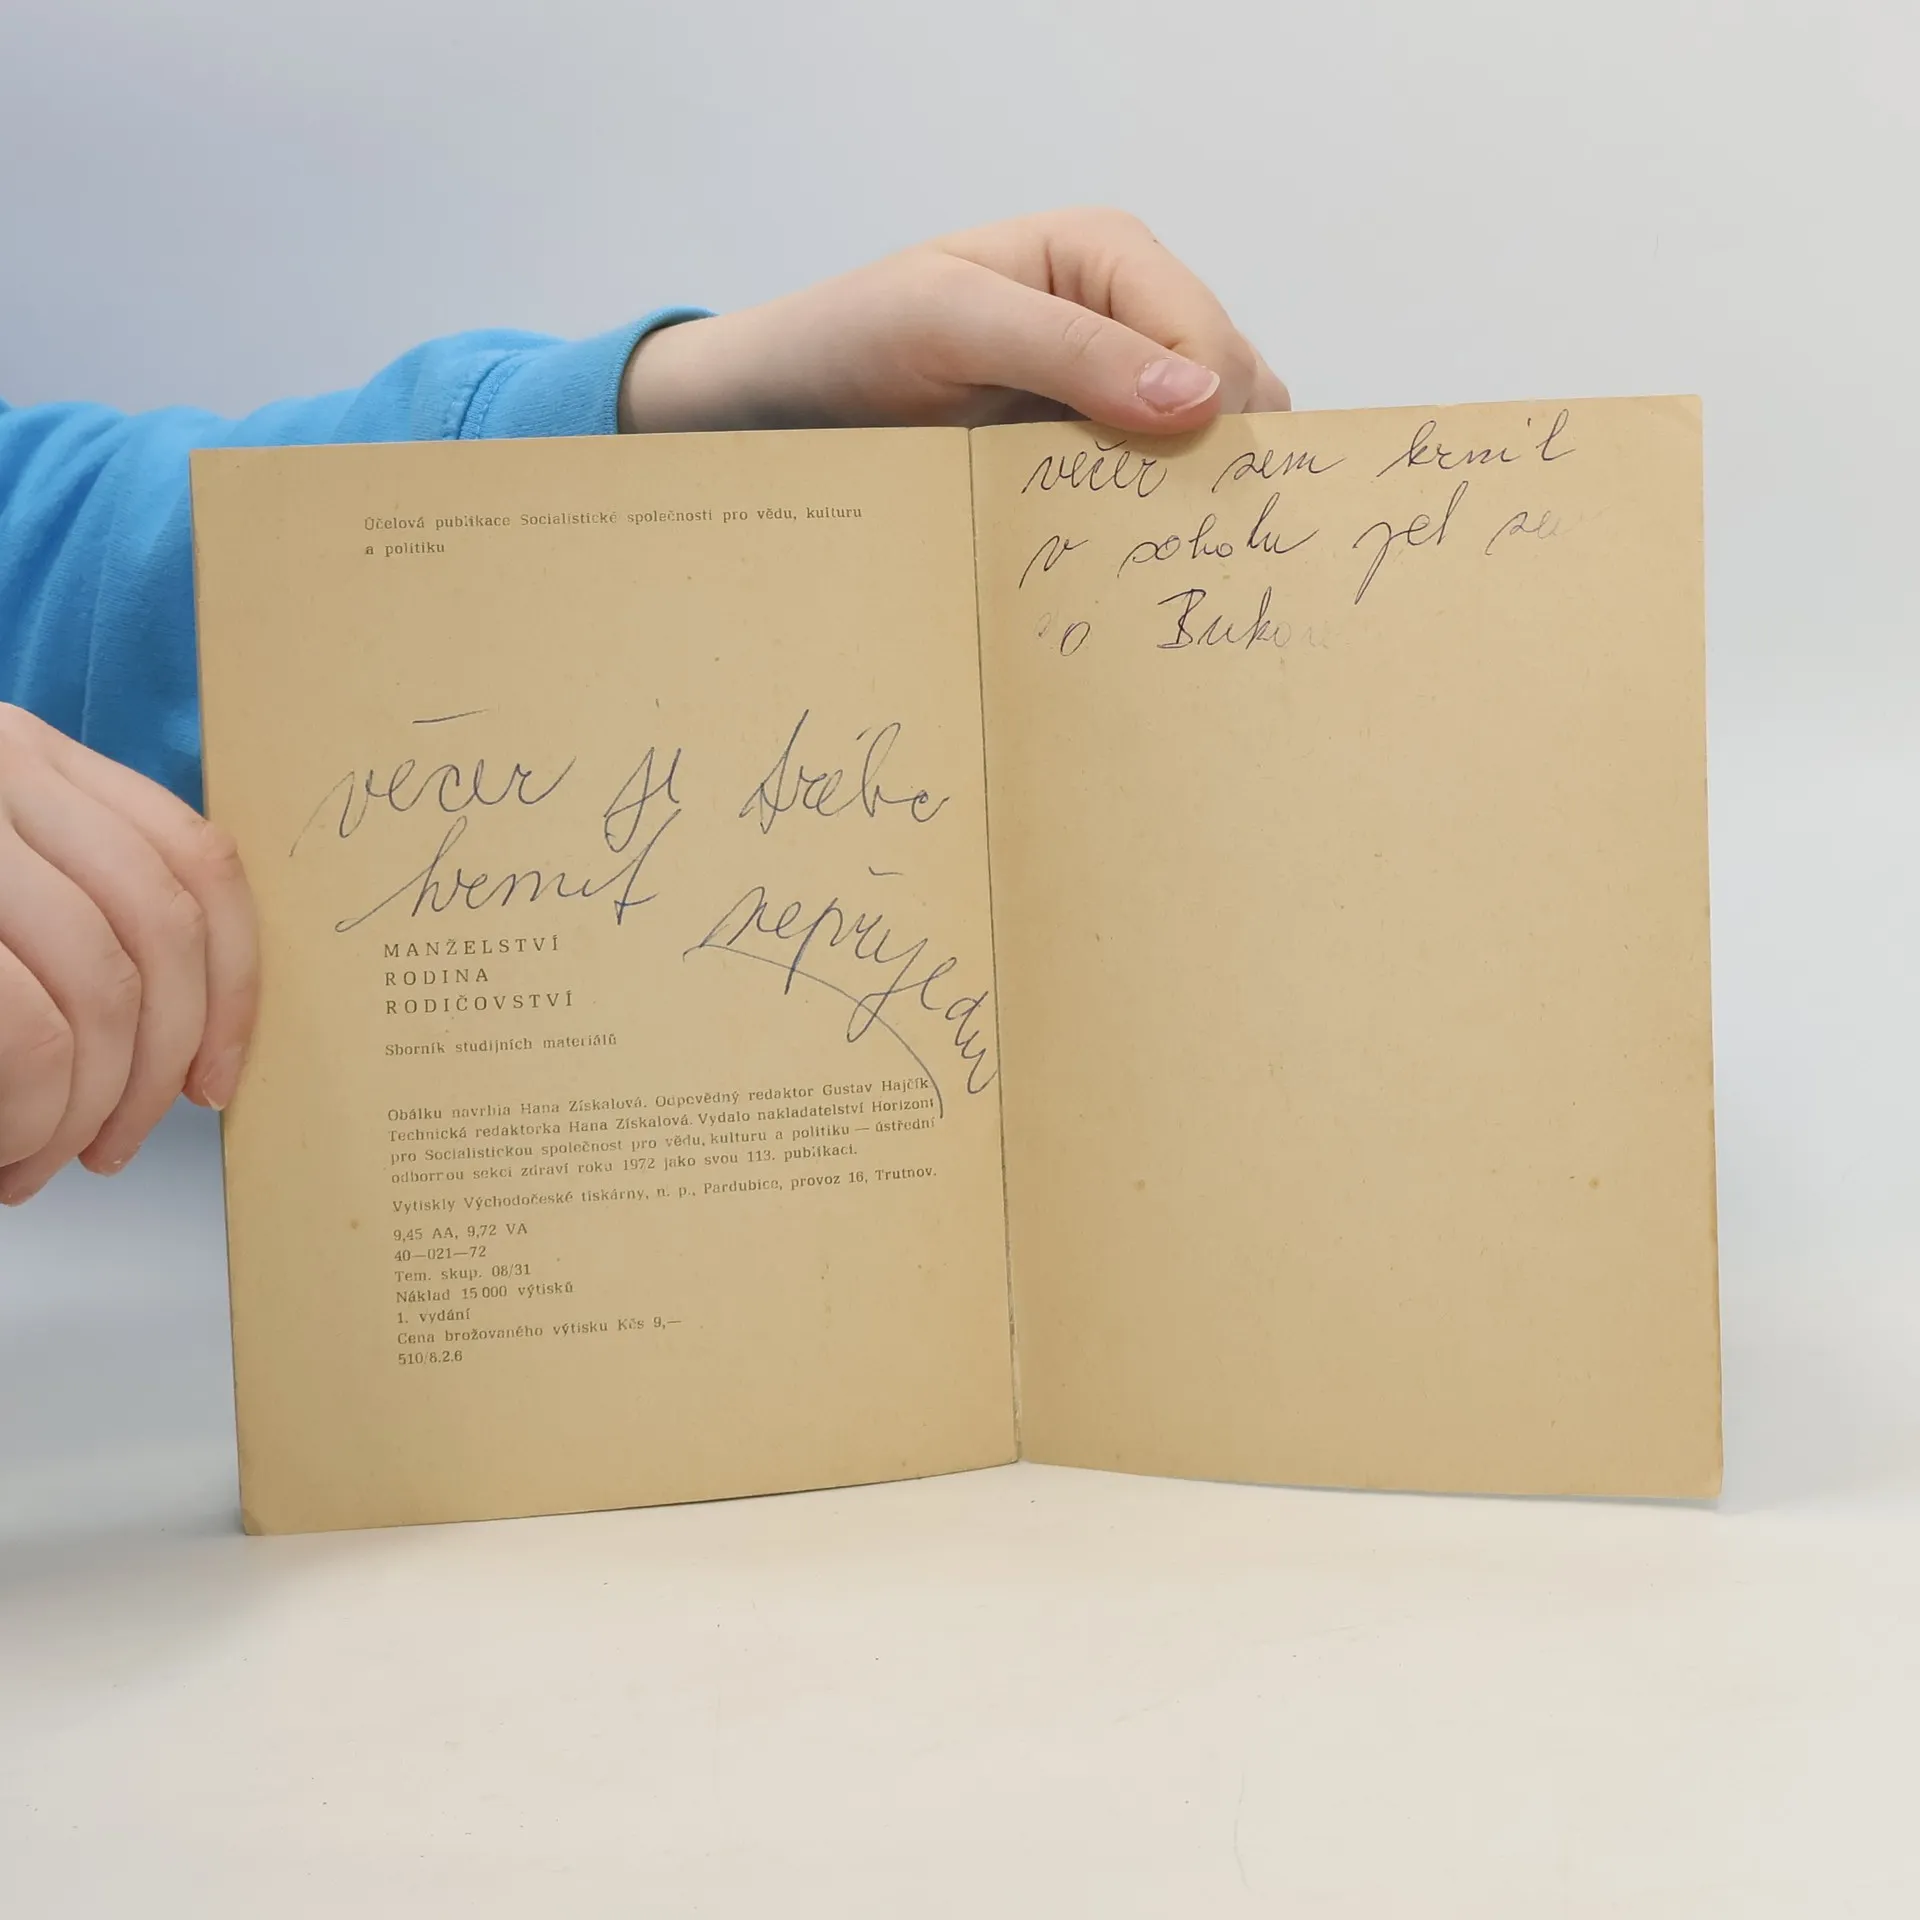 Účelová publikace Socialistické společnosti pro vědu, kulturu
a politiku
večer je třeba
krmit nepřijedu
MANŽELSTVÍ
RODINA
RODIČOVSTVÍ
Sborník studijních materiálů
Obálku navrhla Hana Získalová. Odpovědný redaktor Gustav Hajčík.
Technická redaktorka Hana Získalová. Vydalo nakladatelství Horizont
pro Socialistickou společnost pro vědu, kulturu a politiku — ústřední
odbornou sekci zdraví roku 1972 jako svou 113. publikaci.
Vytiskly Východočeské tiskárny, n. p., Pardubice, provoz 16, Trutnov.
9,45 AA, 9,72 VA
40—021—72
Tem. skup. 08/31
Náklad 15 000 výtisků
1. vydání
Cena brožovaného výtisku Kčs 9,—
510/8.2.6
večer sem krmil
v sobotu jel
Buko